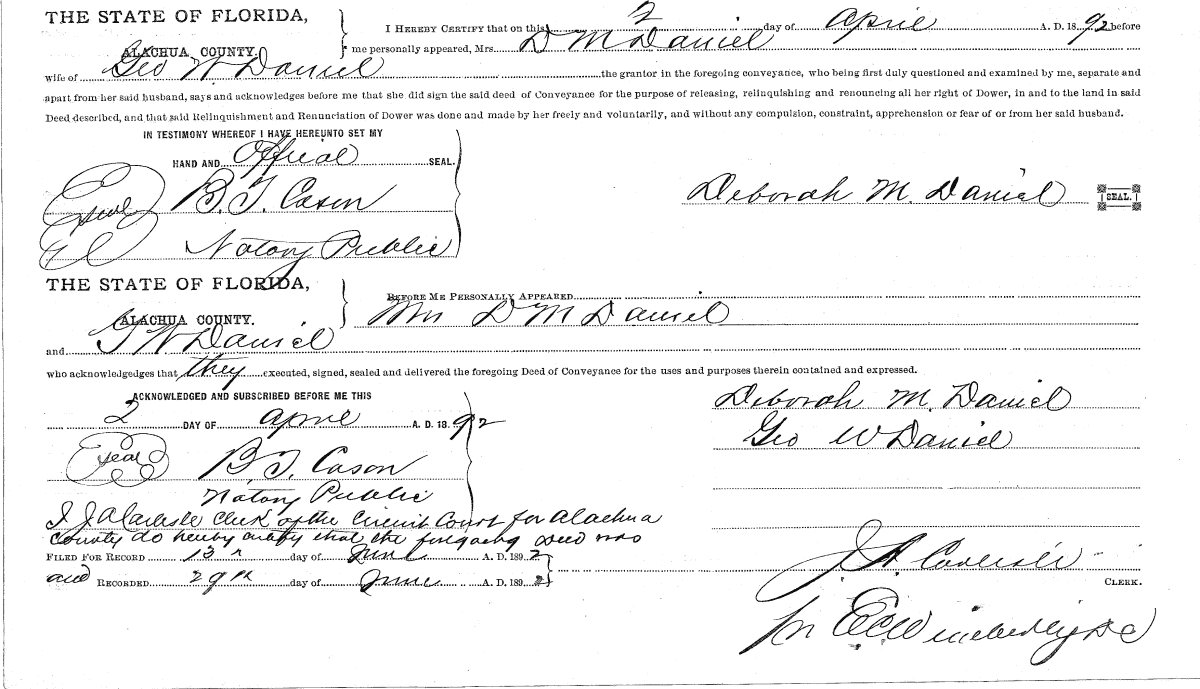 THE STATE OF FLORIDA,
ALACHUA COUNTY.
I HEREBY CERTIFY that on this 2 day of April A. D. 1892 before
me personally appeared, Mrs. D M Daniel
wife of Geo W Daniel the grantor in the foregoing conveyance, who being first duly questioned and examined by me, separate and
apart from her said husband, says and acknowledges before me that she did sign the said deed of Conveyance for the purpose of releasing, relinquishing and renouncing all her right of Dower, in and to the land in said
Deed described, and that said Relinquishment and Renunciation of Dower was done and made by her freely and voluntarily, and without any compulsion, constraint, apprehension or fear of or from her said husband.
IN TESTIMONY WHEREOF I HAVE HEREUNTO SET MY
HAND AND Official SEAL.
Seal
B. T. Cason
Notary Public
Deborah M. Daniel SEAL.
THE STATE OF FLORIDA,
ALACHUA COUNTY.
BEFORE ME PERSONALLY APPEARED
Mrs D M Daniel
and G W Daniel
who acknowledgedges that they executed, signed, sealed and delivered the foregoing Deed of Conveyance for the uses and purposes therein contained and expressed.
ACKNOWLEDGED AND SUBSCRIBED BEFORE ME THIS
2 DAY OF April A. D. 1892
Seal
B. T. Cason
Notary Public
Deborah M. Daniel
Geo W Daniel
I J A Carlisle Clerk of the Circuit Court for Alachua
County do hereby certify that the foregoing deed was
FILED FOR RECORD 13 day of June A. D. 1892
and RECORDED 29th day of June A. D. 1892
J. A. Carlisle
CLERK.
E. C. Wimberly D C